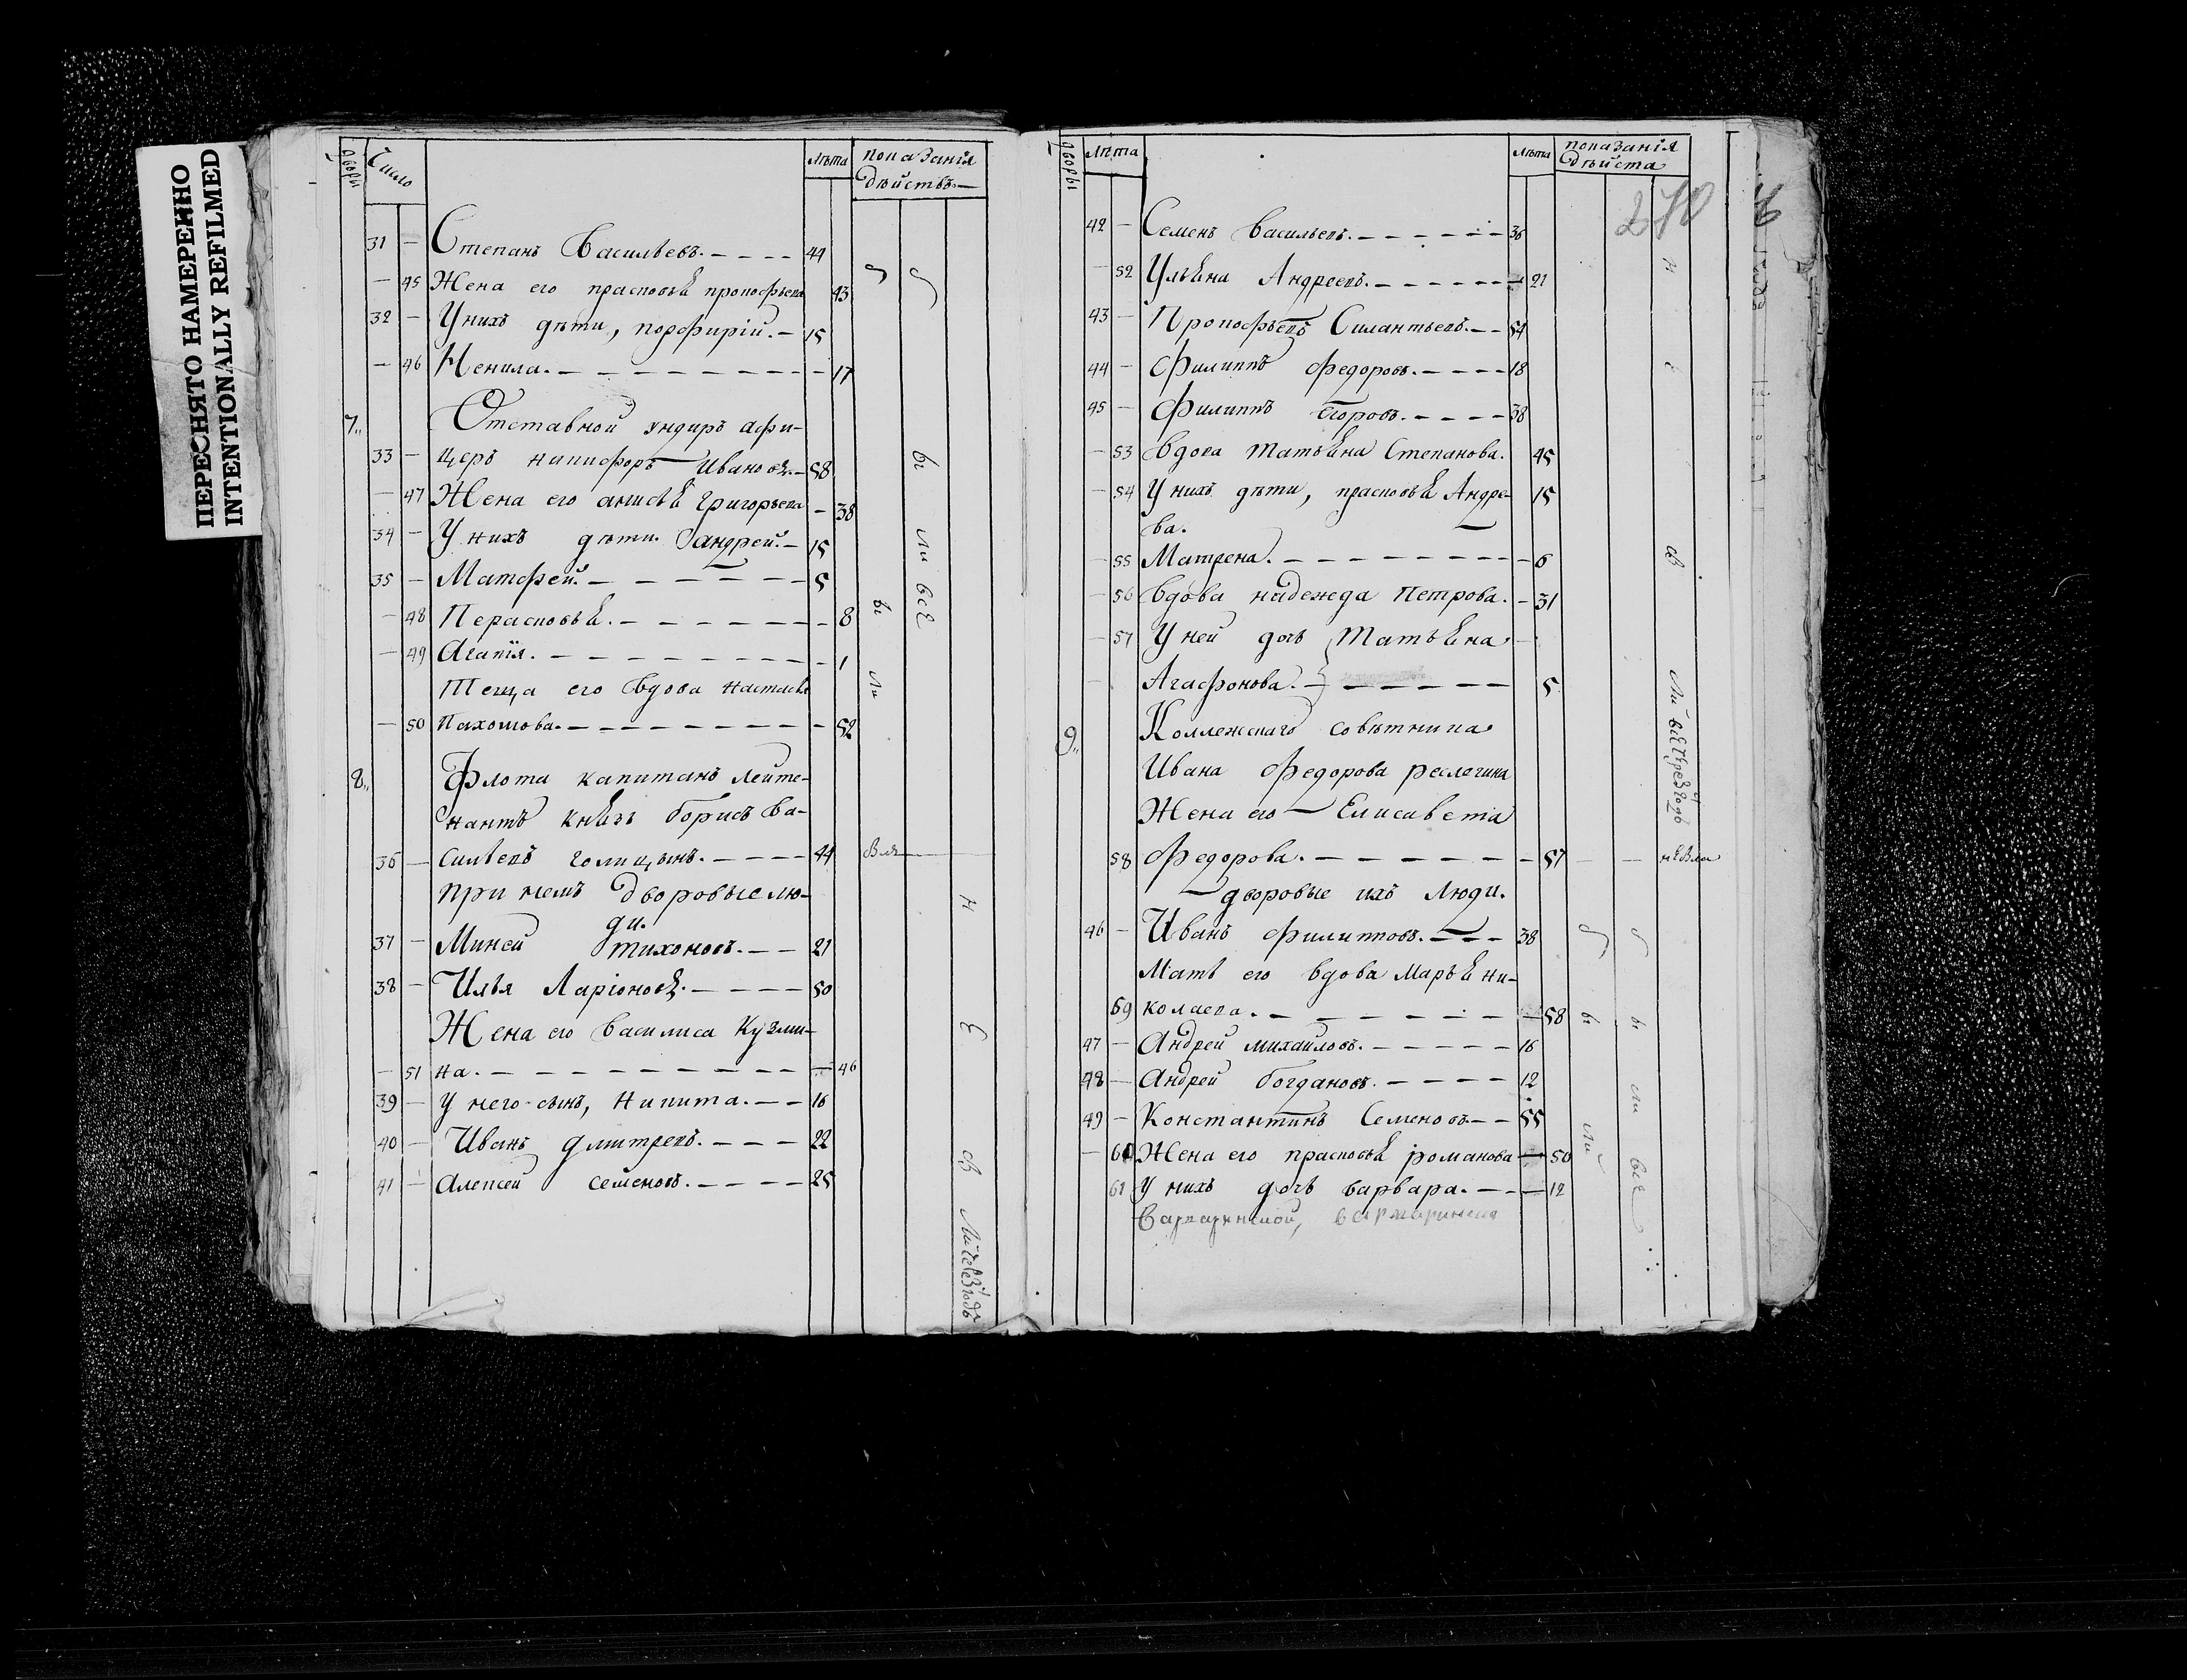 ПЕРЕСНЯТО НАМЕРЕННО
INTENTIONALLY REFILMED
дворы Число лѣта показанія
дѣйствъ
31 — Степанъ Васильевъ. — — — — 44
— 45 Жена его прасковья прокофьева 43
32 — У нихъ дѣти, порфирій. — 15
— 46 Ненила. — — — — — — — — — 17
7,, Отставной ундиръ афи-
33 — церъ никифоръ Ивановъ. — 58
— 47 Жена его анисья григорьева — 38
34 — У нихъ дѣти андрей. — 15
35 — Матфей. — — — — — — 5
— 48 Персковья. — — — — — — — 8
— 49 Агапія. — — — — — — — — — 1
Теща его Вдова настасья
— 50 Пахомова. — — — — — — — — 52
8,, Флота капитанъ лейте-
нантъ князь борисъ Ва-
36 — сильевъ голицынъ. — — — — 44
при немъ дворовые лю-
ди.
37 — Миней тихоновъ. — — 21
38 — Илья Ларіоновъ. — — — — 50
Жена его Василиса Кузми-
— 51 на. — — — — — — — — — — — 46
39 — у него сынъ, Никита. — — 16
40 — Иванъ дмитревъ. — — — 22
41 — Алексей семеновъ. — — — — 25
бы ли все
бы ли
н е
дворы лѣта лѣта показанія
дѣйста
270
42 — Семенъ Васильевъ. — — — — — — 36
— 52 Ульяна Андреевъ. — — — — — — — 21
43 — Прокофьевъ Силантьевъ. — — 54
44 — Филиппъ Федоровъ. — — — — 18
45 — Филиппъ егоровъ. — — — — 38
— 53 Вдова татьяна Степанова. 45
— 54 У нихъ дѣти, прасковья Андре- 15
ва.
— 55 Матрена. — — — — — — — — — — 6
— 56 Вдова надежда Петрова. — 31
— 57 У ней дочь Татьяна
Агафонова. — — — — — — 5
9,, Коллежскаго совѣтника
Ивана Федорова
Жена его Елисавета
58 Федорова. — — — — — — — 57
дворовые ихъ люди.
46 — Иванъ филипповъ. — — — 38
Мать его вдова Марья ни-
59 колаева. — — — — — — — — 58
47 — Андрей михайловъ. — — — — — 16
48 — Андрей богдановъ. — — — — 12
49 — Константинъ Семеновъ — — 55
— 60 Жена его прасковья романова — 50
61 У нихъ дочь варвара. — — — 12
бы ли
бы ли все